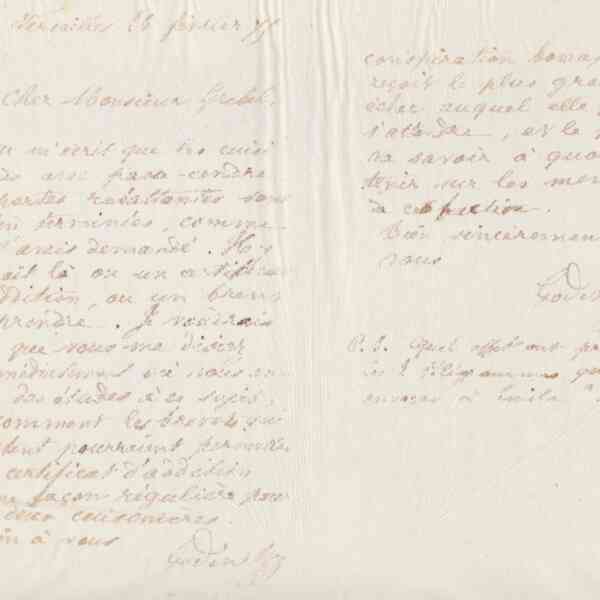 Versailles 26 février 75
Cher Monsieur Grebel,
m'écrit que les cuisi
avec passe-cendre
portes rabattantes sont
terminées, comme
avais demandé. Il y
ait là ou un certificat
ddition, ou un brevet
prendre. Je voudrais
que vous me disiez
médiatement où vous en
des études à ce sujet,
comment les brevets qui
tent pourraient permettre
certificat d'addition
façon régulière pour
cuisinières.
à vous
Godin
conspiration bonap
reçoit le plus gra
échec auquel elle
s'attendre, et le
va savoir à quo
tenir sur les me
de cette faction.
Bien sincèrement
vous
Godin
P. S. Quel effet ont pr
les télégrammes que
envoyés à Guise